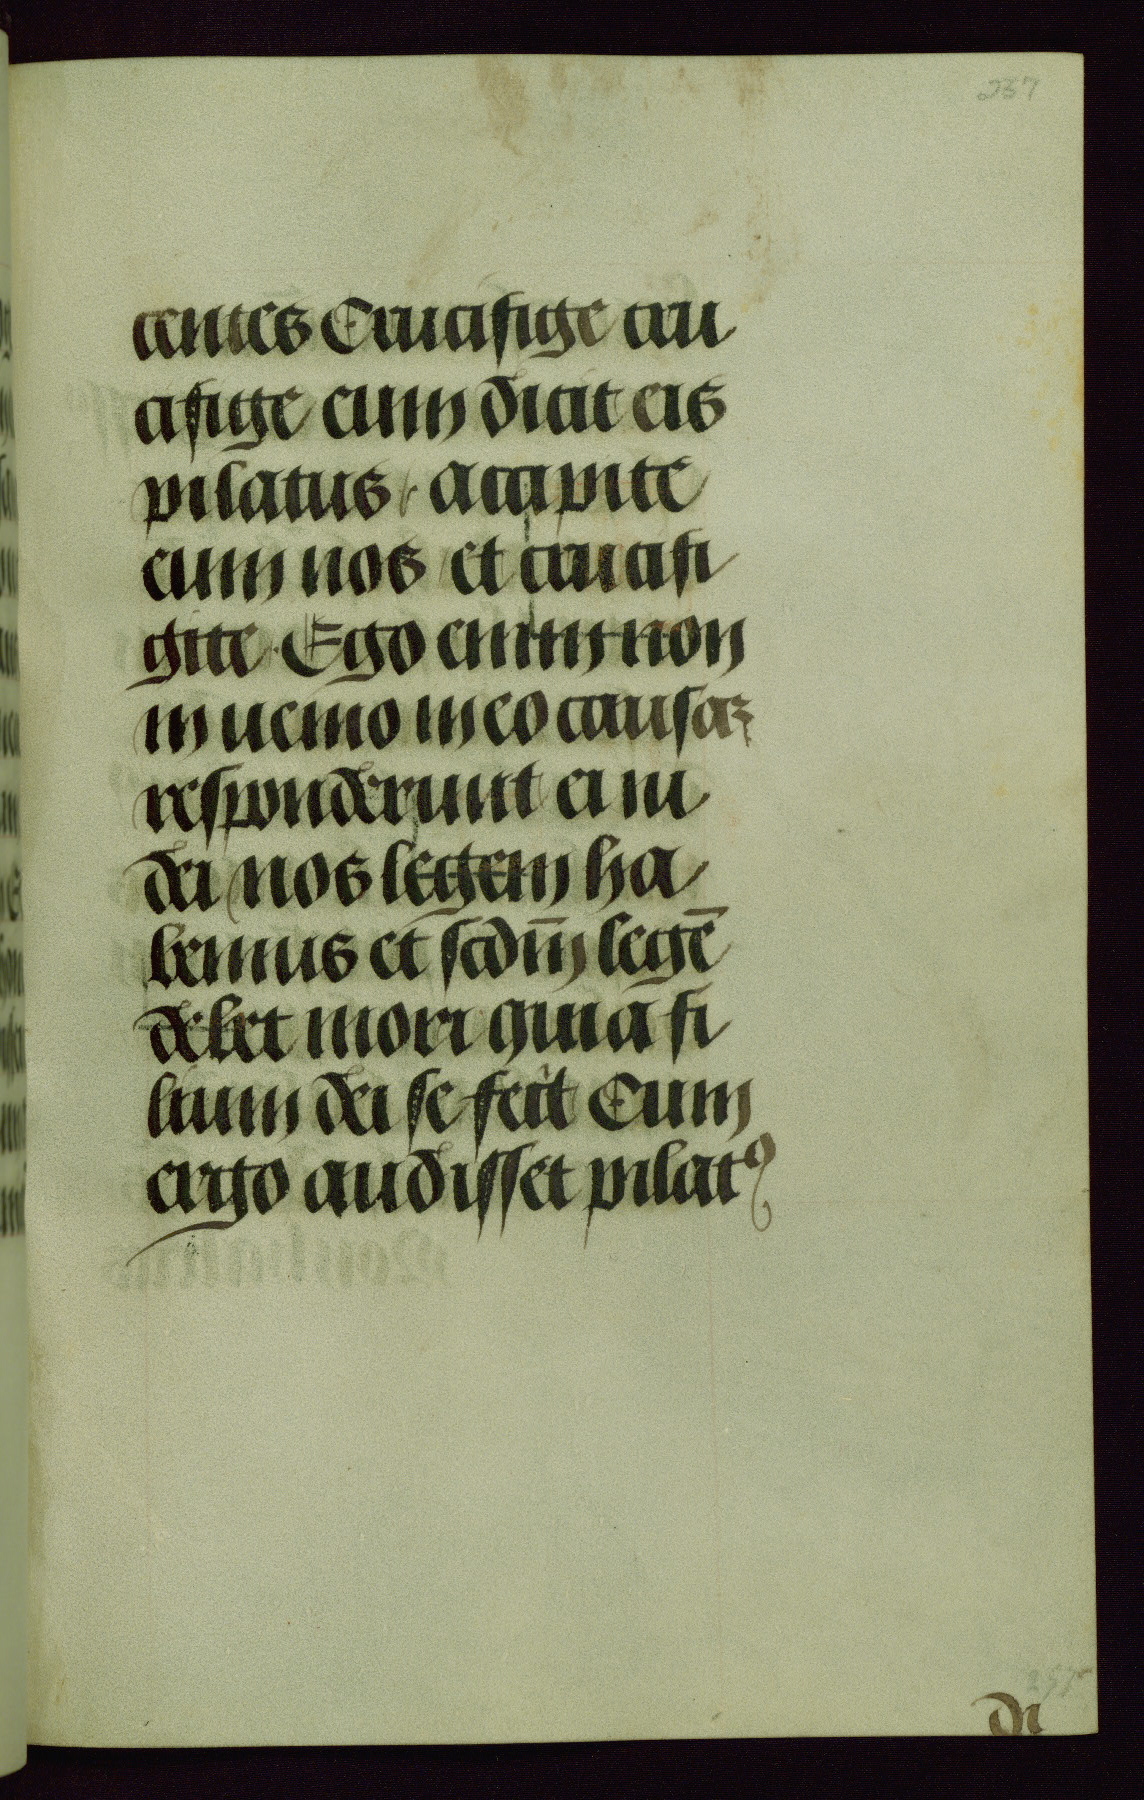 237
centes Crucifige cru
cifige eum dicit eis
pilatus accipite
eum uos et crucifi
gite Ego enim non
in uenio in eo causaꝫ
responderunt ei iu
dei nos legem ha
bemus et scdm̄ legē
debet mori quia fi
lium dei se fecit Cum
ergo audisset pilatꝰ